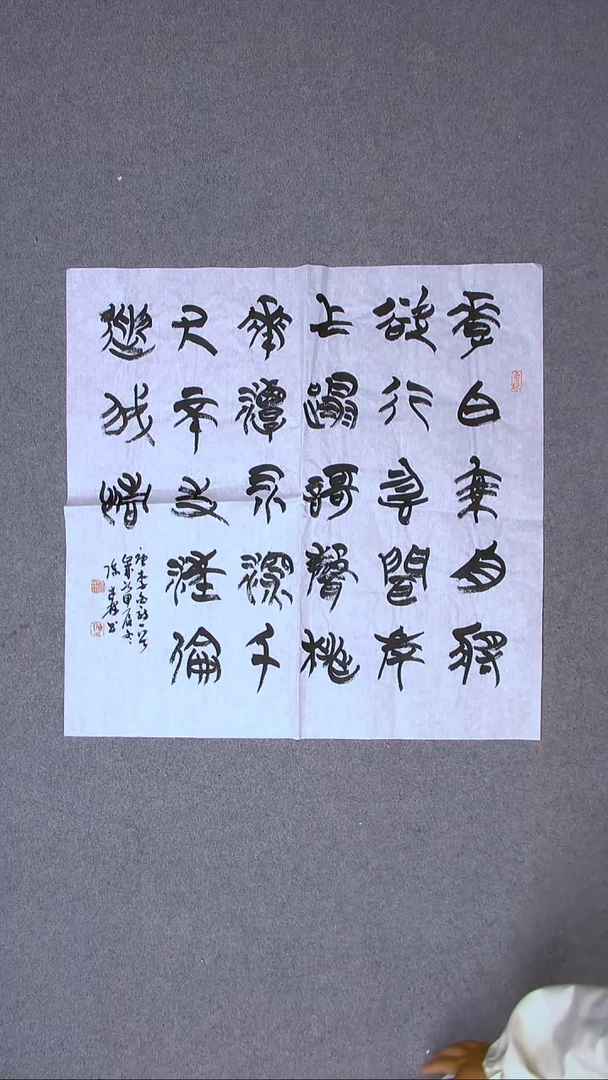 李白乘舟將
欲行忽聞岸
上踏歌聲桃
花潭水深千
尺不及汪倫
送我情
唐李白詩一首
歲次甲辰冬